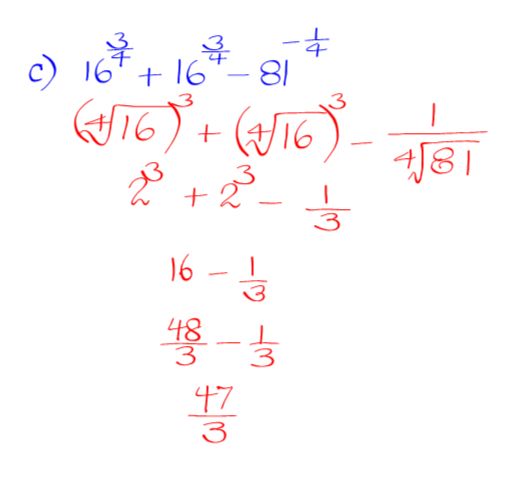 c) 16^(3/4) + 16^(3/4) − 81^(−1/4)
(∜16)³ + (∜16)³ − 1/∜81
2³ + 2³ − 1/3
16 − 1/3
48/3 − 1/3
47/3